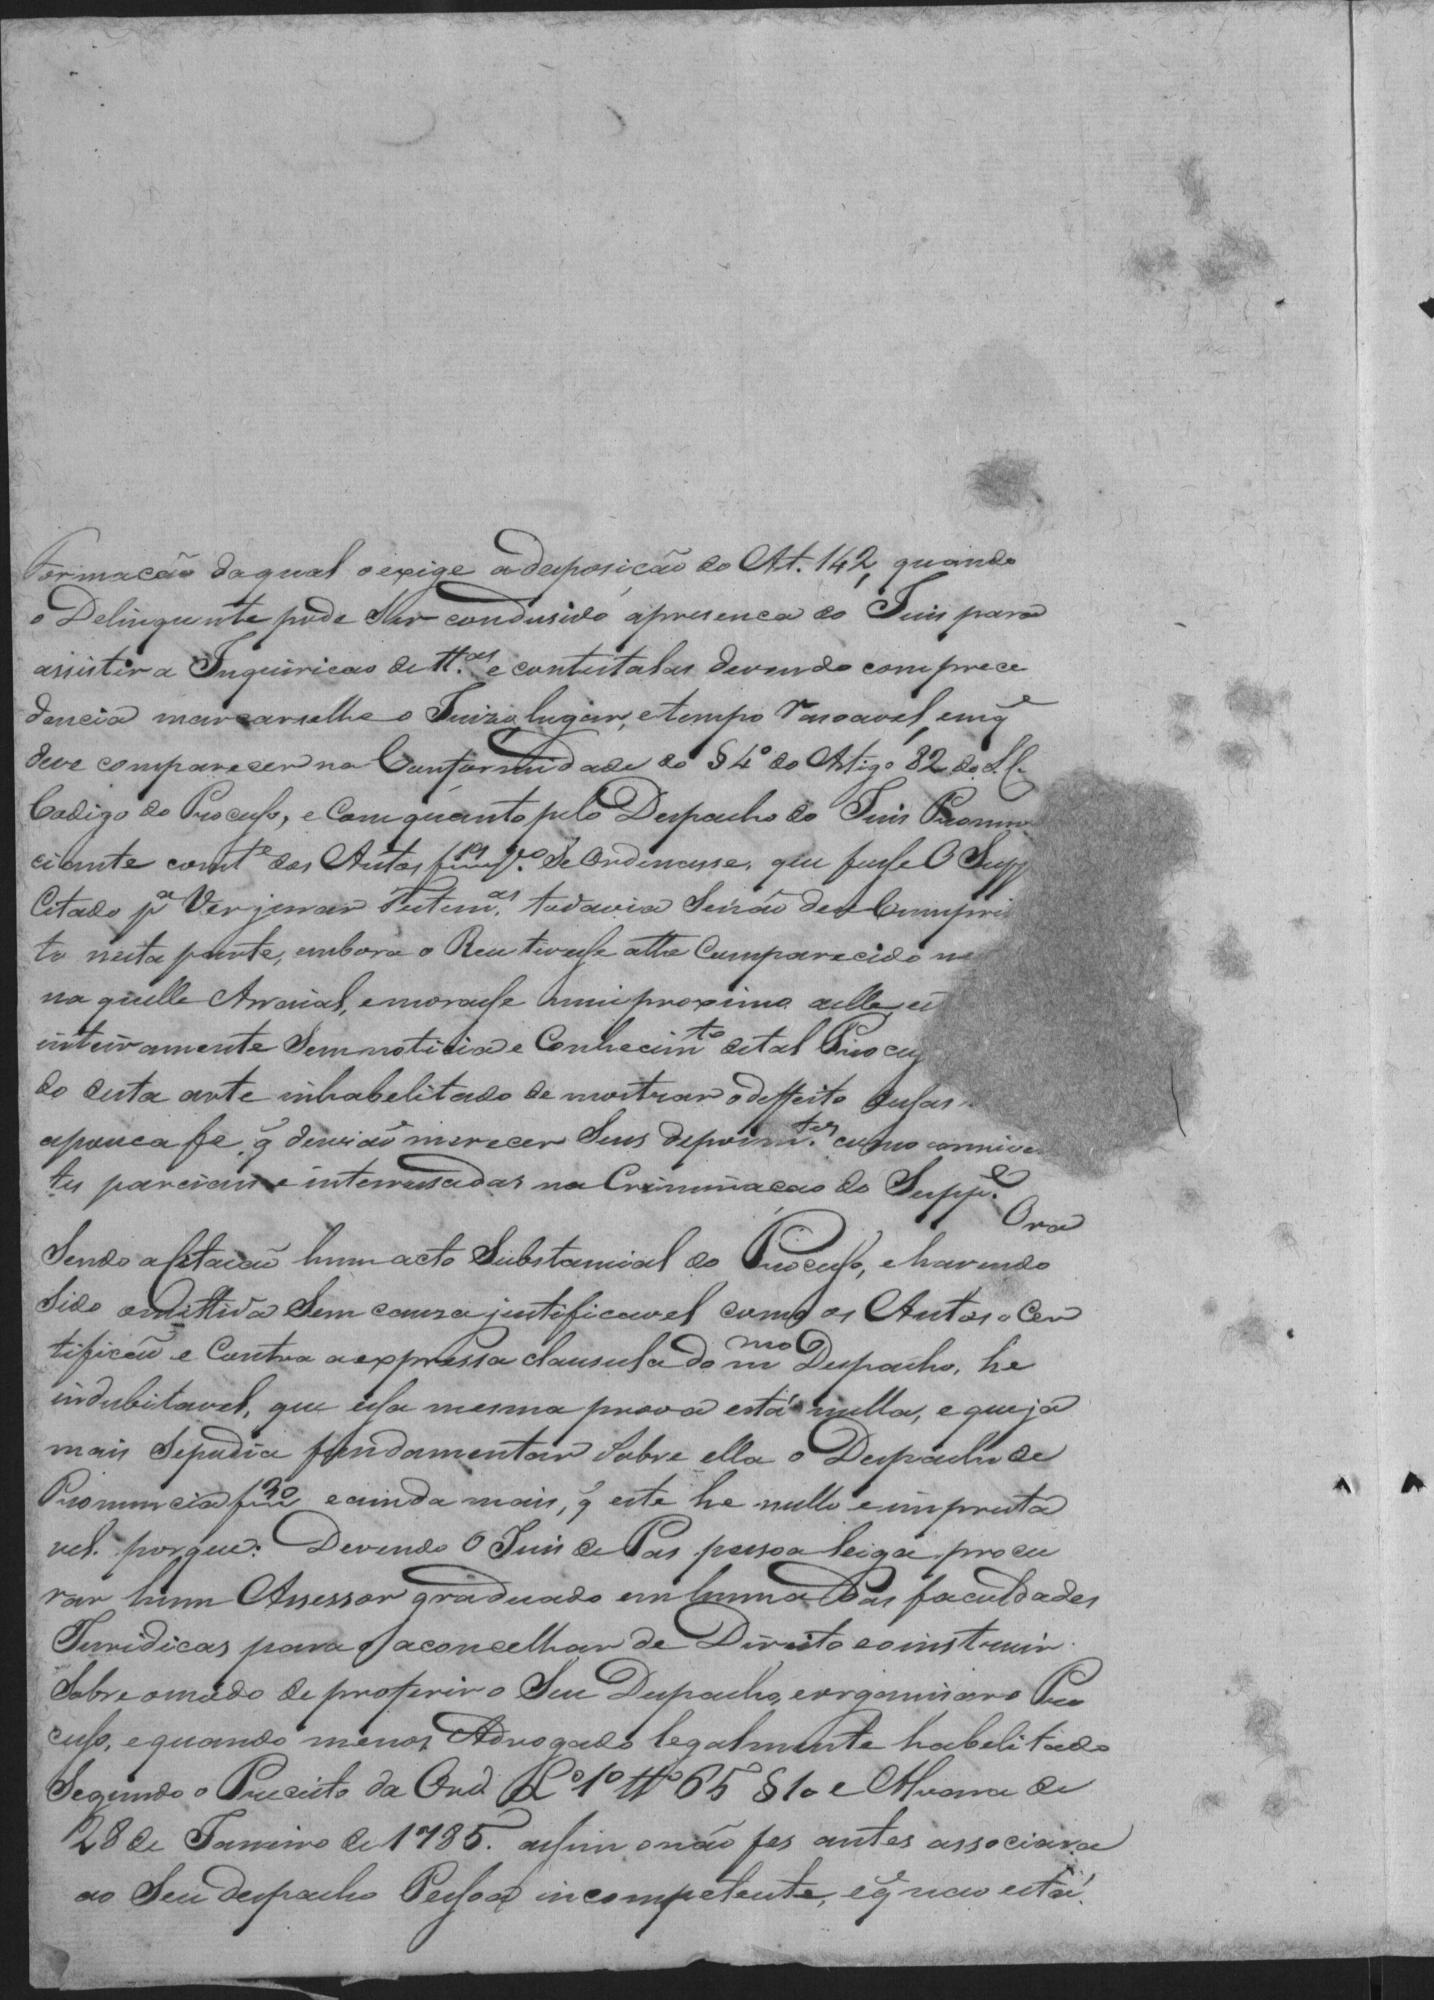 Formacão daqual o exige a desposicão do Art. 142, quando
o Delinquente pode ser condusido apresenca do Juis para
assistir a Inquiricao de tt.as e contestalas devendo comprece
dencia marcarselhe o Juizo, lugar, e tempo rasoavel, emq̃
deve comparecer na Conformidade do § 4º do Artigo 82 do
Codigo do Processo, e com quanto pelo Despacho do Juis Pronun
ciante const.e dos Autos se Ordenasse, que fosse O Supp
Citado p.a Ver jurar Testem.as todavia Senão deu Cumpri
to nesta parte, embora o Reu tivesse athe Comparecido
na quelle Arraial, e morasse mui proximo aelle,
inteiramente Sem noticia e Conhecim.to de tal Proces
do desta arte inhabelitado de mostrar o deffeito dessas
apouca fe q̃ devião merecer Seus depoim.tos como conniven
tes parciais e interessadas na Criminacao do Supp.e Ora
Sendo a Citacão hum acto Substancial do Processo, e havendo
Sido omittida Sem causa justificavel como os Autos o Cer
tificão e Contra a expressa clausula do mmo Despacho, he
indubitavel, que essa mesma prova está nulla, e que já
mais Sepodia fundamentar Sobre ella o Despacho de
Pronuncia f 30 e ainda mais, q̃ este he nullo e imprestа
vel. porque: Devendo O Juis de Pas pessoa leiga procu
rar hum Assessor graduado em huma das faculdades
Juridicas para o aconcelhar de Direito e o instruir
Sobre o modo de proferir o Seu Despacho, e organisar o Pro
cesso, e quando menos Advogado legalmente habelitado
Segundo o Preceito da Ord. L.º 1º tt.º 65 § 10 e Alvara de
28 de Janeiro de 1785. assim o não fes antes associara
ao Seu despacho Pessoa incompetente, e q̃ nao está